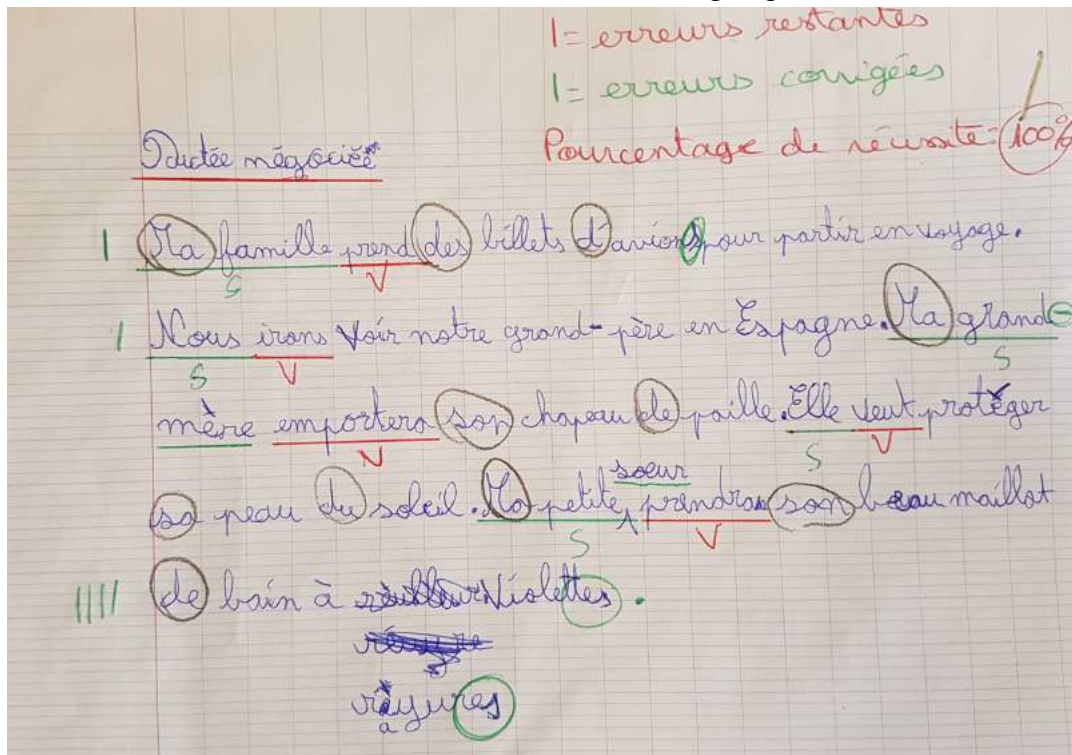 1 = erreurs restantes
1 = erreurs corrigées
Pourcentage de réussite = 100%
Dictée négociée
Ma famille prend des billets d'avions pour partir en voyage.
S V
Nous irons voir notre grand-père en Espagne. Ma grand-
S V S
mère emportera son chapeau de paille. Elle veut protéger
V S V
sa peau du soleil. Ma petite soeur prendra son beau maillot
S V
de bain à violettes.
rayures